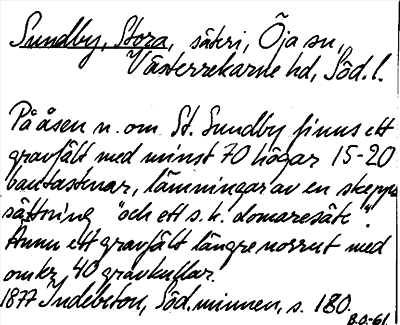 Sundby, Stora, säteri, Öja sn,
Västerrekarne hd, Söd. l.
På åsen n. om St. Sundby finns ett
gravfält med minst 70 högar 15-20
bautastenar, lämningar av en skepps
sättning "och ett s. k. domaresäte".
Ännu ett gravfält längre norrut med
omkr. 40 gravkullar.
1877 Indebetou, Söd. minnen, s. 180.
B.O.-61